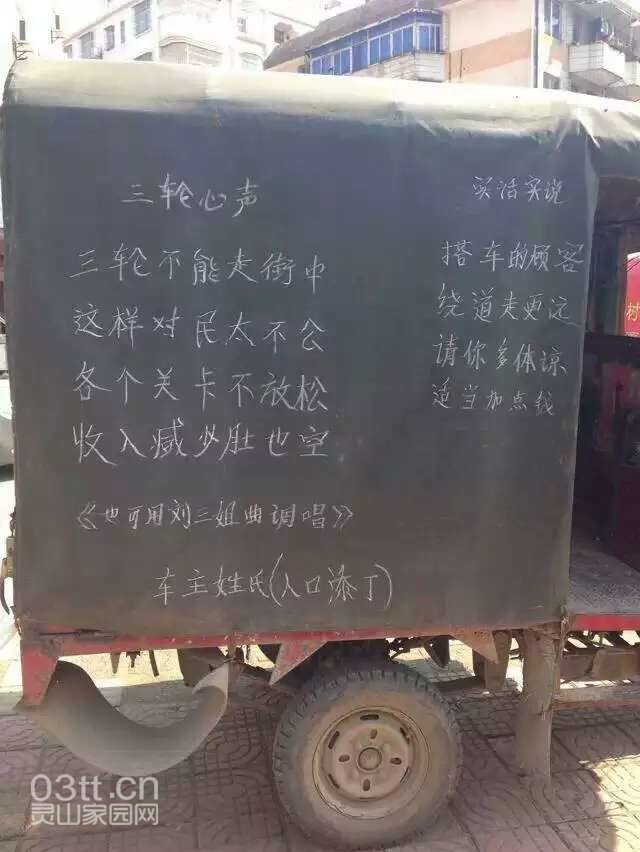 三轮心声
三轮不能走街中
这样对民太不公
各个关卡不放松
收入减少肚也空
《也可用刘三姐曲调唱》
车主姓氏(人口添丁)
实话实说
搭车的顾客
绕道走更远
请你多体谅
适当加点钱
村
03tt.cn
灵山家园网